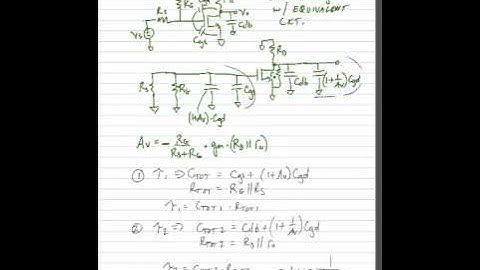 w/ EQUIVALENT
CKT.
Rs RG Vo
Vs Cgs Cdb
RD
Rs RG (1+Av)·Cgd Cgs Cdb (1+1/Av)Cgd
Av = - RG/(Rs+RG) · gm·(RD||ro)
① τ1 ⇒ CTOT = Cgs + (1+Av)Cgd
RTOT = RG||RS
τ1 = CTOT1 · RTOT1
② τ2 ⇒ CTOT2 = Cdb + (1+1/Av)Cgd
RTOT2 = RD||ro